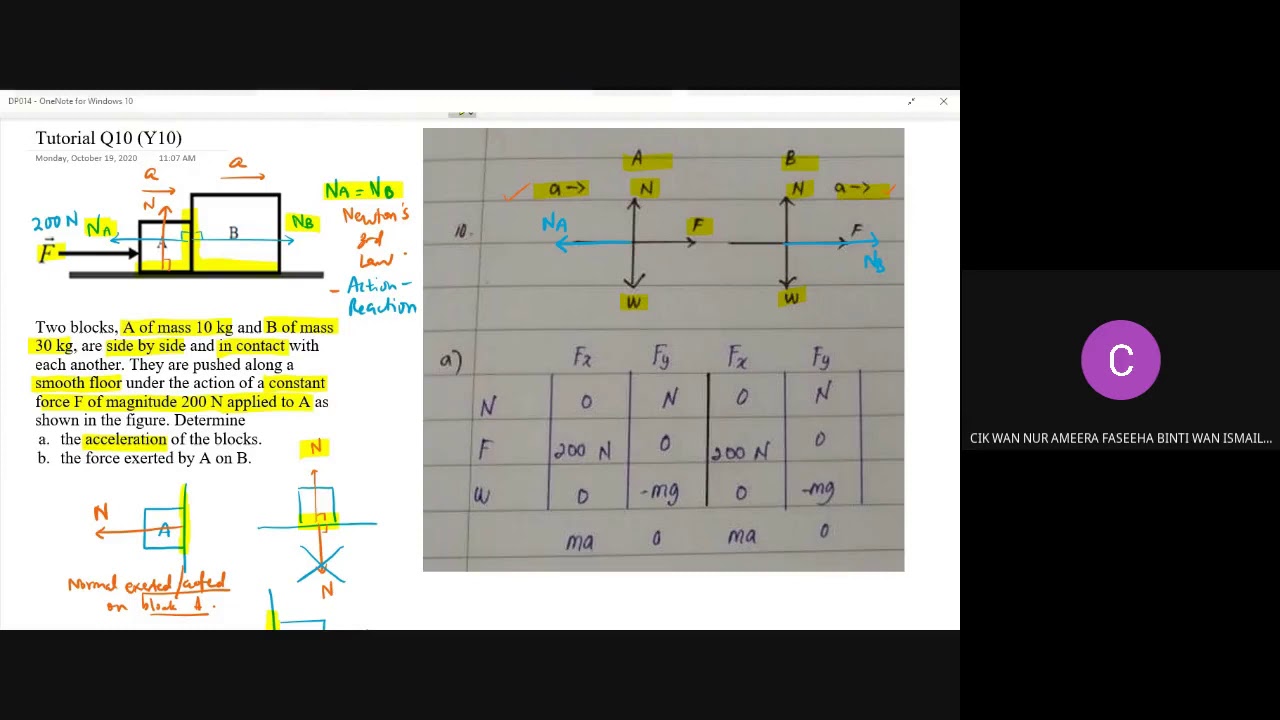 DP014 - OneNote for Windows 10
Tutorial Q10 (Y10)
Monday, October 19, 2020 11:07 AM
a
a
N
200 N
NA
A
B
NB
F
NA = NB
Newton's
3rd
Law.
- Action -
Reaction
Two blocks, A of mass 10 kg and B of mass
30 kg, are side by side and in contact with
each another. They are pushed along a
smooth floor under the action of a constant
force F of magnitude 200 N applied to A as
shown in the figure. Determine
a. the acceleration of the blocks.
b. the force exerted by A on B.
N
A
Normal exerted/acted
on block A.
N
N
10.
A
B
a→
N
N
a→
NA
F
F
NB
W
W
a)
Fx Fy Fx Fy
N 0 N 0 N
F 200 N 0 200 N 0
W 0 -mg 0 -mg
ma 0 ma 0
C
CIK WAN NUR AMEERA FASEEHA BINTI WAN ISMAIL...